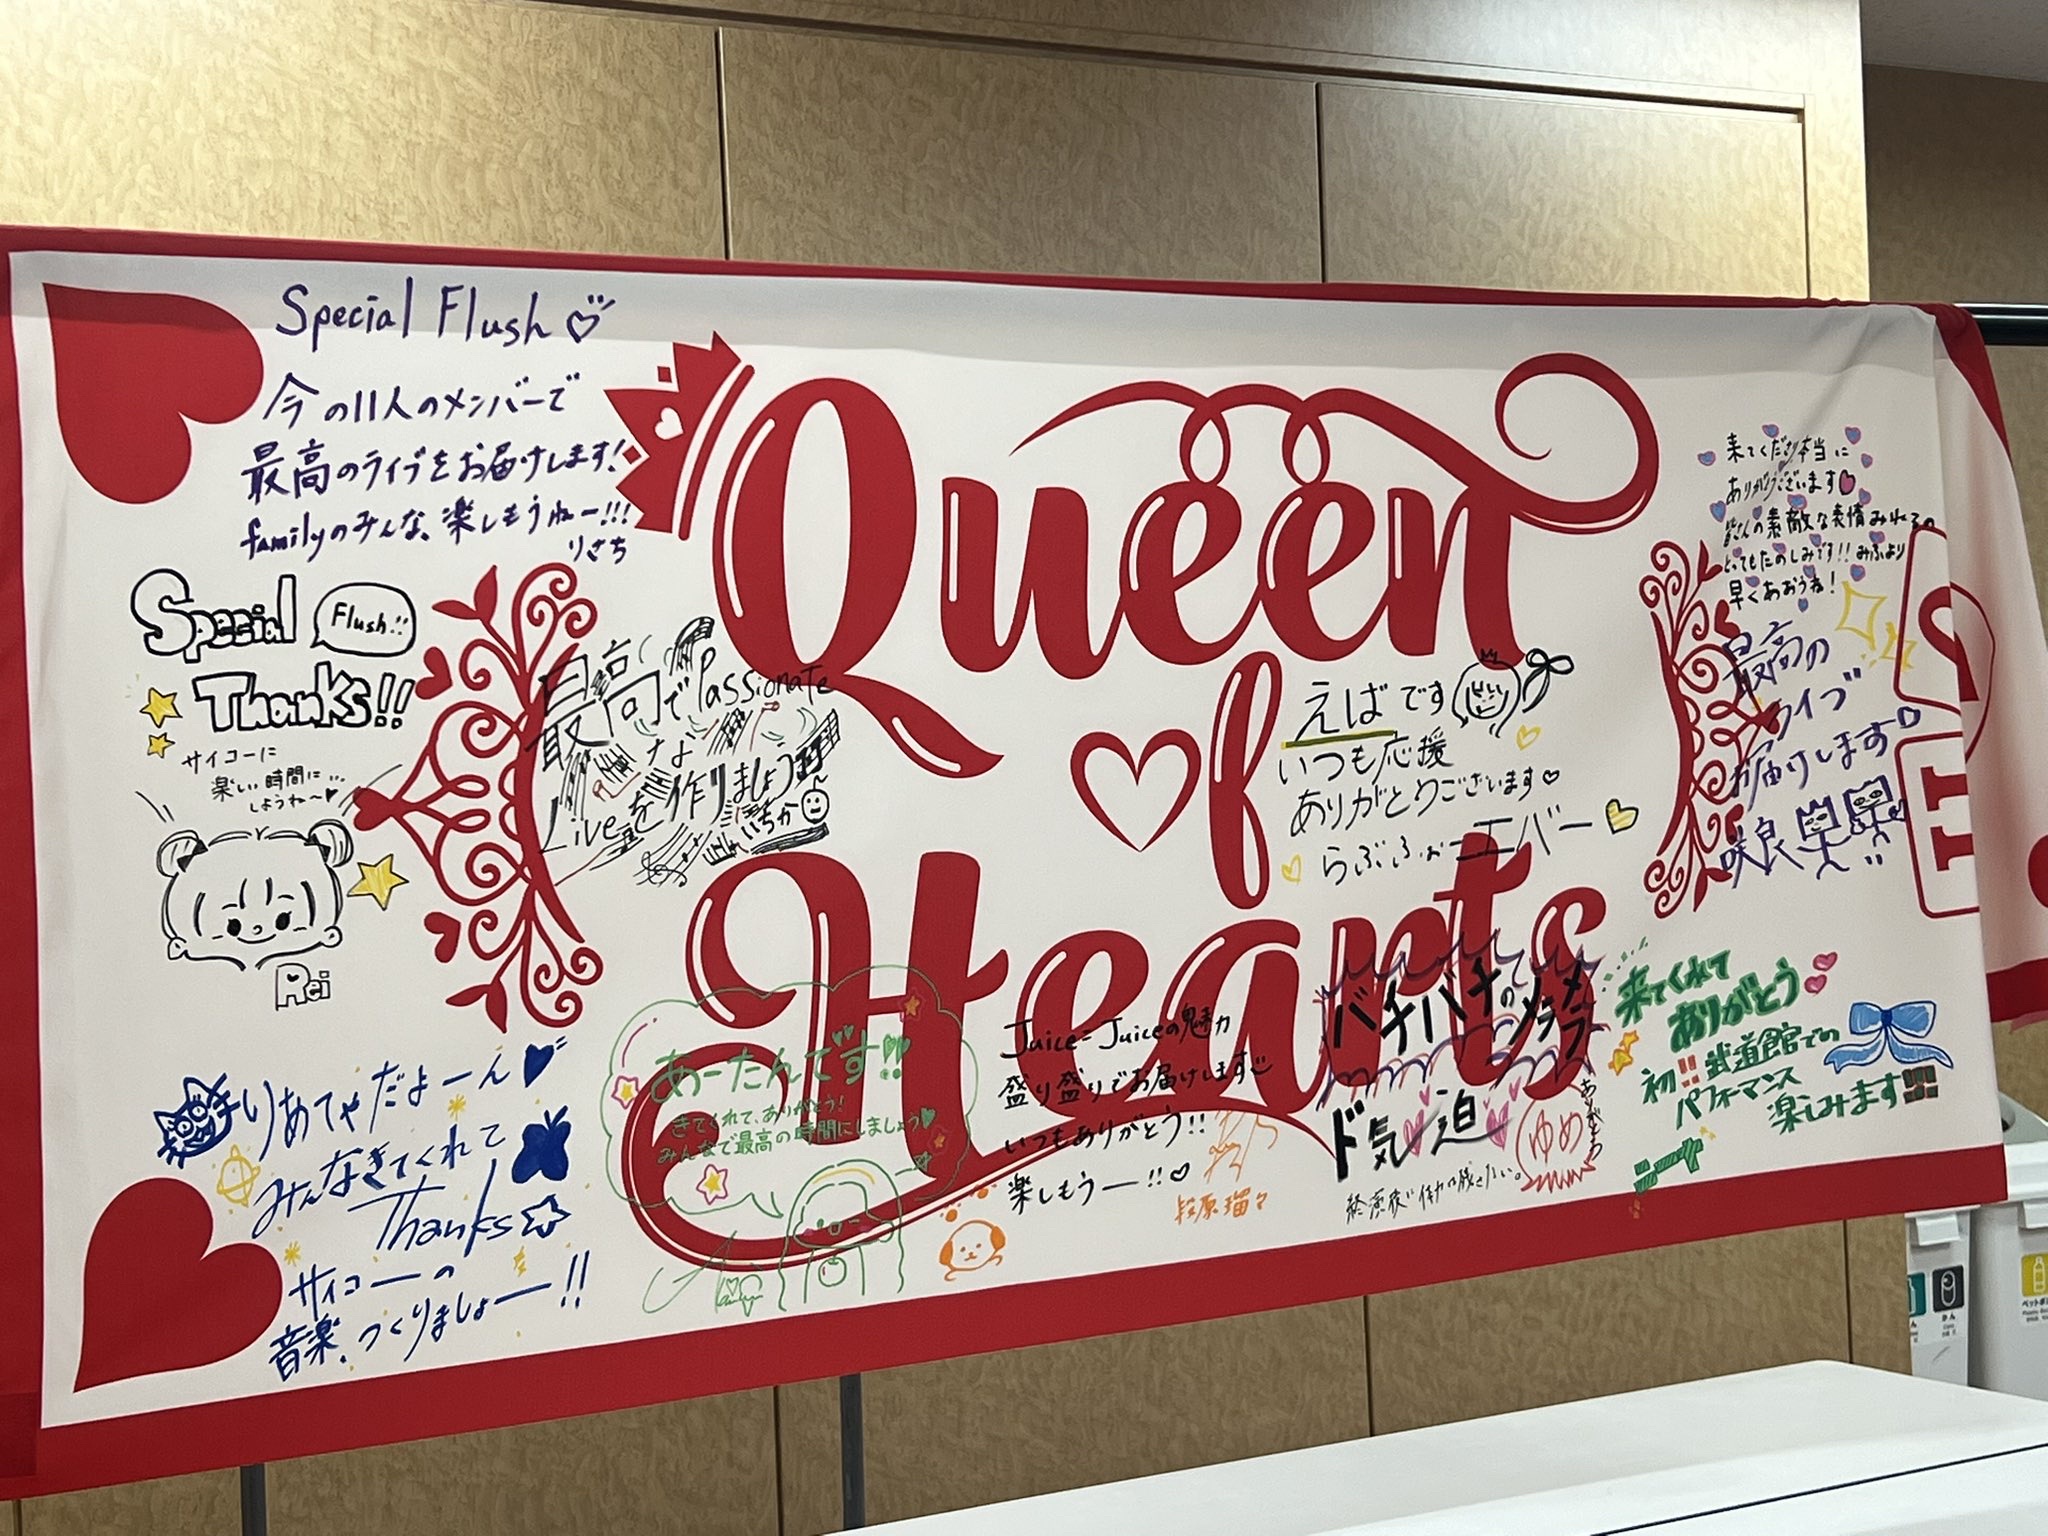 Special Flush
今の11人のメンバーで
最高のライブをお届けします!
familyのみんな、楽しもうねー!!!
りさち
Special
Flush!!
Thanks!!
サイコーに
楽しい時間に...
しようね〜♥
Rei
りあてゃだよーん♥
みんなきてくれて
Thanks☆
サイコーの
音楽、つくりましょー!!
Queen
of
Hearts
最高でPassionaTe
なよ
Liveを作りましょう
いちか
えばです
いつも応援
ありがとうございます♡
らぶふぉーエバー
来てくださ本当に
ありがとうございます
皆さんの素敵な表情みれるの
とってもたのしみです!! みふより
早くあおうね!
最高の
ライブ
お届けします♡
咲良
あーたんです!!
きてくれて、ありがとう!
みんなで最高の時間にしましょう♥
Juice=Juiceの魅力
盛り盛りでお届けします
いつもありがとう!!
楽しもうー!!♡
段原瑠々
バチバチの
メラメラ
ド気迫
ゆめ
来てくれて
ありがとう
初!! 武道館での
パフォーマンス
楽しみます!!!